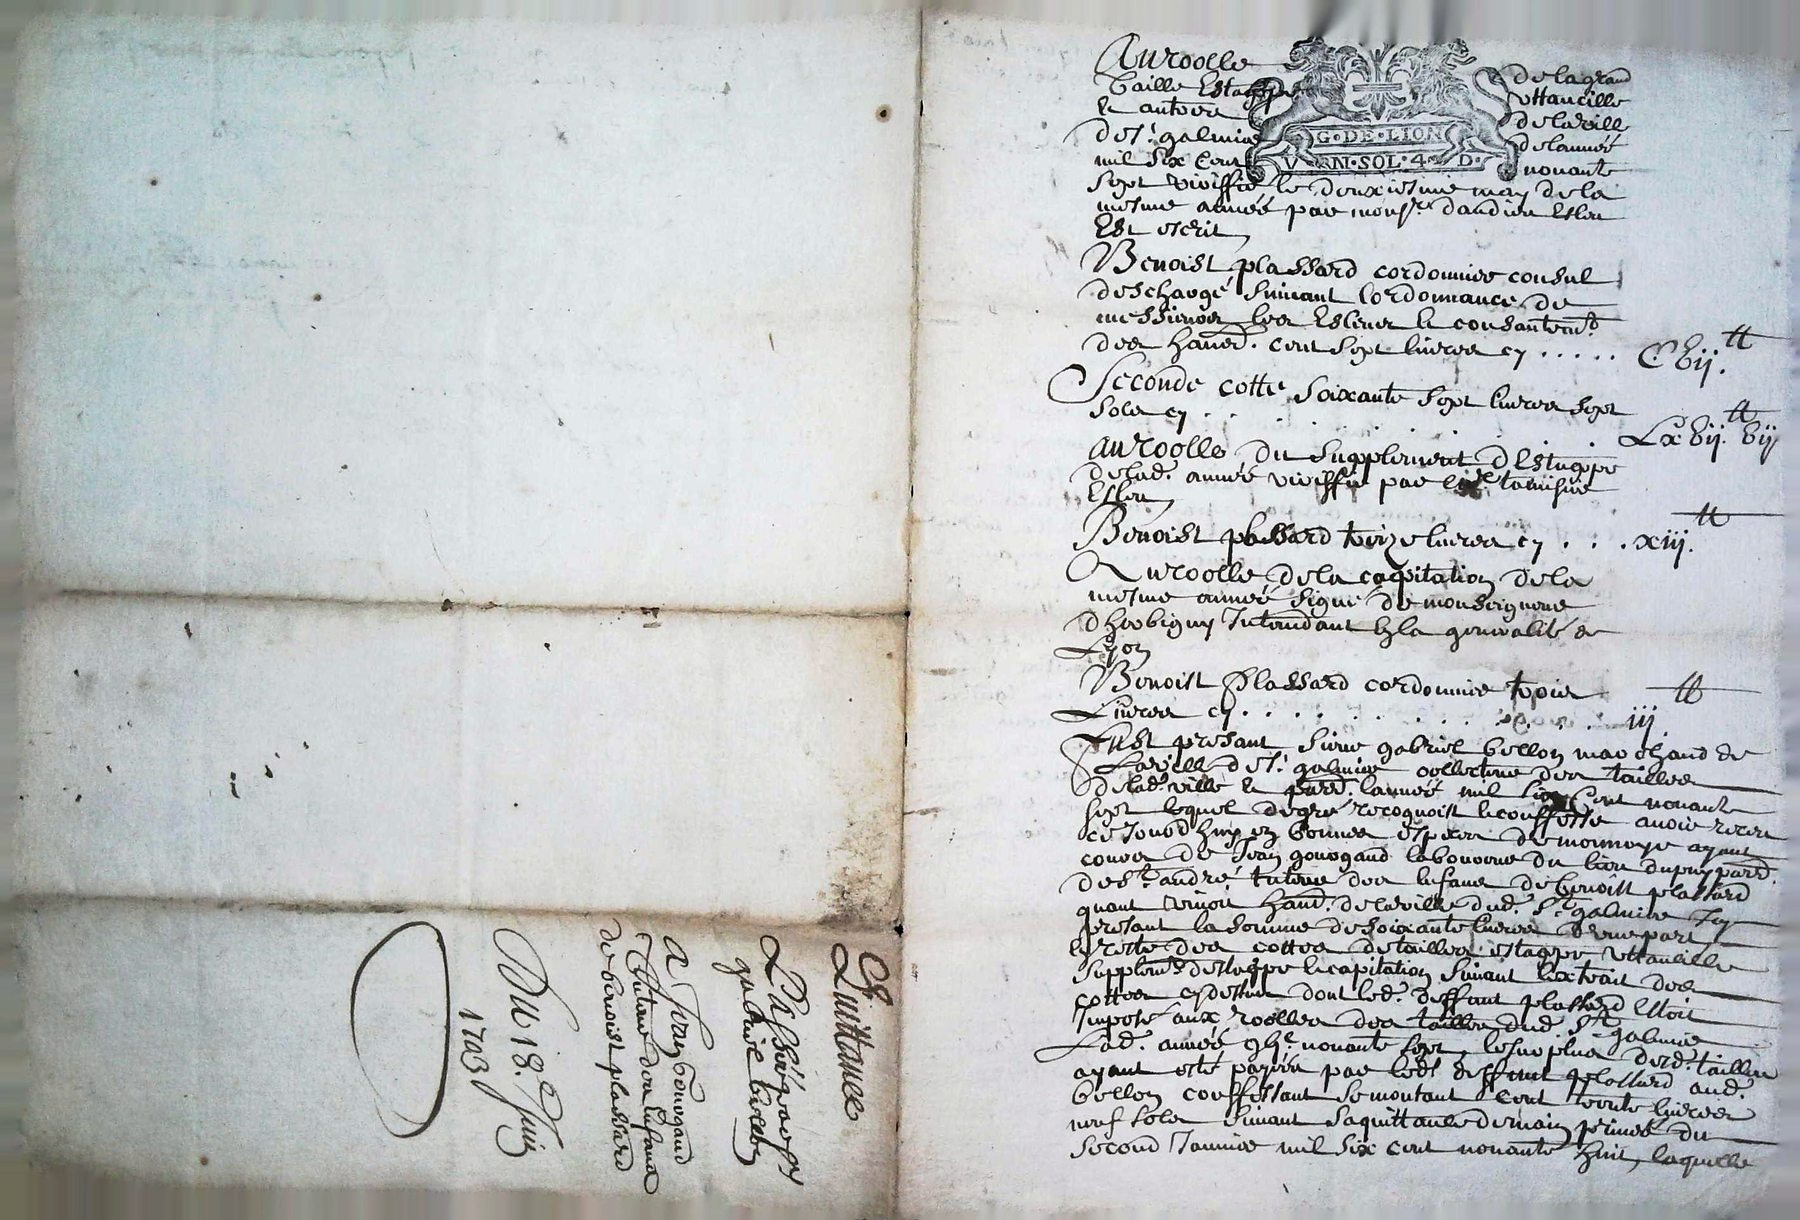 Au roolle de la grand
Taille Estappe Uttancille
Et autres de la ville
de St galmier de lannee
mil six cent nonante
sept veriffié le deuxiesme may de la
mesme année par monsr. dandieu Esleu
Est escrit
Benoist plassard cordonnier consul
deschargé suivant lordonnance de
messieurs les Esleus Et consantemt.
des habd. cent sept livres cy . . . . . C bij. tt
Seconde cotte soixante sept livres sept
sols cy . . . . . . . Lx bij. tt bij
au roolle du supplement dEstappe
de lad. année veriffié par tamisier
Esleu
Benoist plassard treize livres cy . . . xiij. tt
Au roolle de la capitation de la
mesme année signé de monseigneur
dherbigny Intendant En la generalité de
Lyon
Benoist Plassard cordonnier trois
Livres cy . . . . . . . . iij tt
Fust presant sieur gabriel bellon marchand de
La ville de St. galmier collecteur des tailles
de lad. ville Et parr. lannée mil six cent nonante
sept lequel de gré recognoist Et confesse avoir receu
ce Jourdhuy en bonnes espexes de monnoye ayant
cours de Jean gourgaud laboureur du lieu du puy parr.
de St. andré tuteur des Enfans de benoist plassard
quant vivoit habd. de la ville dud. St. galmier Icy
presant la somme de soixante livres dune part
Et reste des cottes de tailles estappe Uttancille
supplemt. destappe Et capitation suivant Lextrait des
cottes cy dessus dont led. deffunt plassard Estoit
Imposé aux roolles des tailles dud. St. galmier
Lad. année nonante sept, le surplus desd. tailles
ayant esté payées par led. deffunt plassard aud.
bellon confessant se montant cent trente livres
neuf sols suivant sa quittance de main privée du
second Janvier mil six cent nonante huit, laquelle
Quittance
Passée par sr
gabriel bellon
A Jean gourgaud
Tuteur des Enfans
de benoist plassard
Du 18.e Juin
1703
G·DE·LION
VN·SOL·4·D·